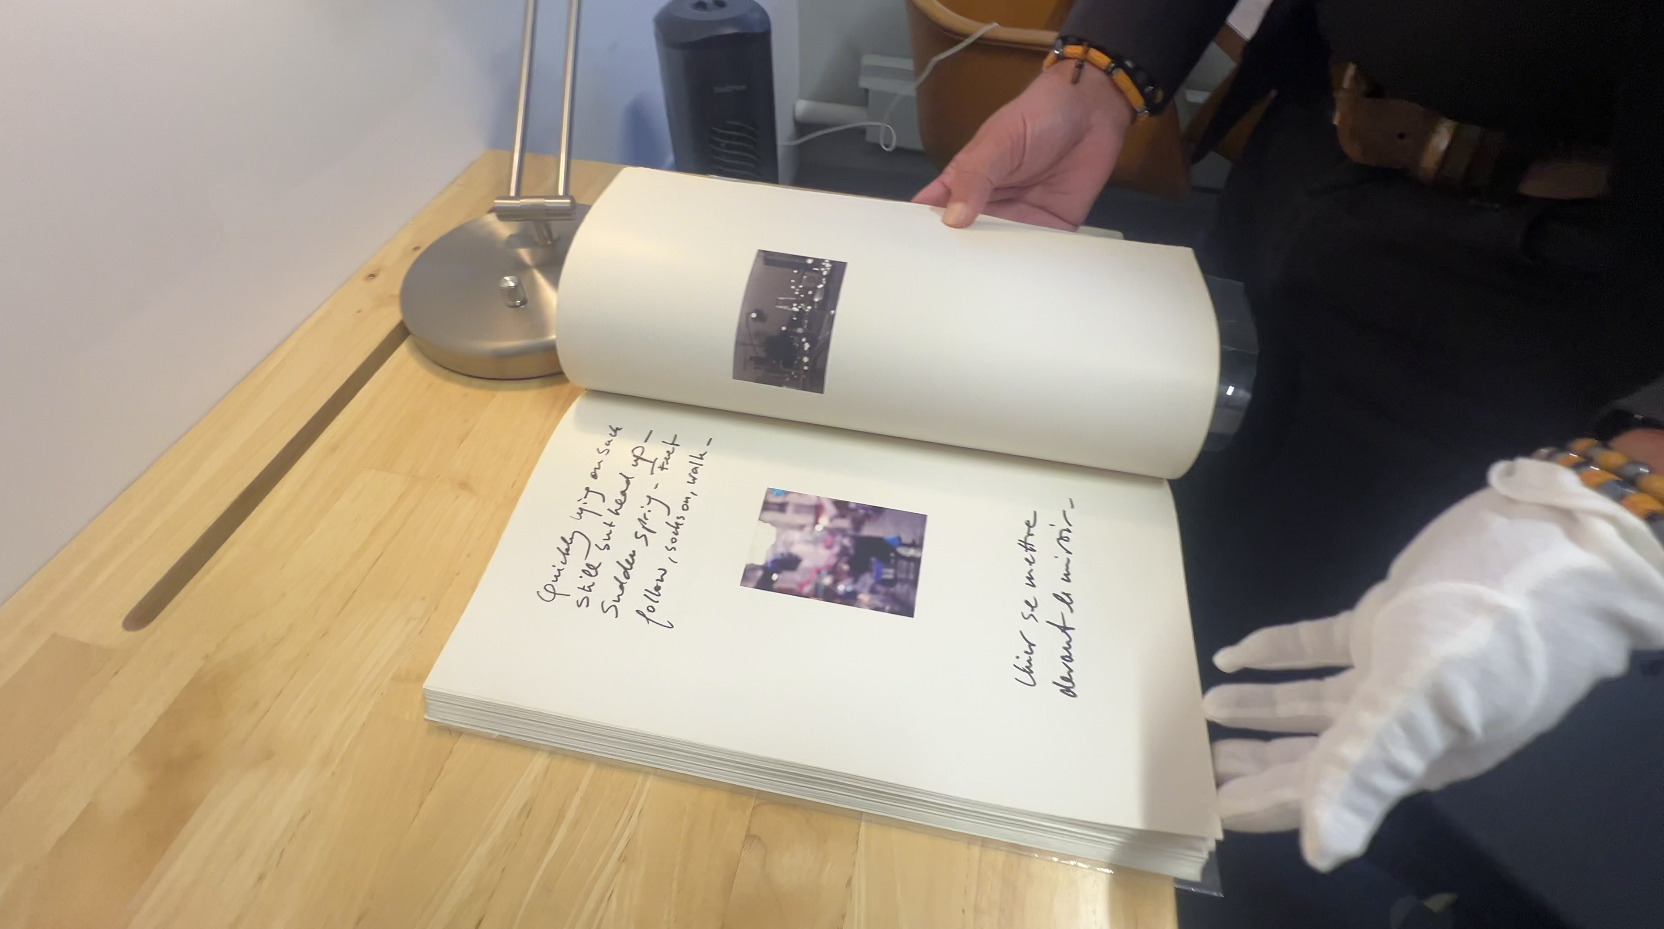 Quickly lying on sack
still but head up –
Sudden spring – feet
follow, socks on, walk –
hier se mettre
devant le miroir –